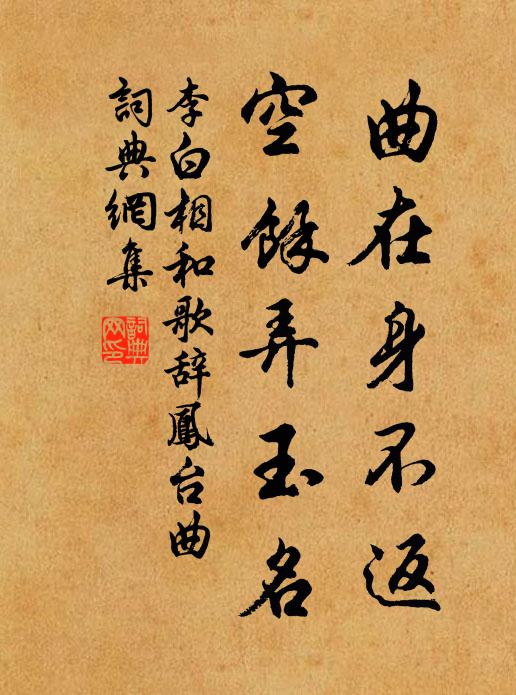 曲在身不返
空餘弄玉名
李白相和歌辞鳳台曲
詞典網集
詞典网印